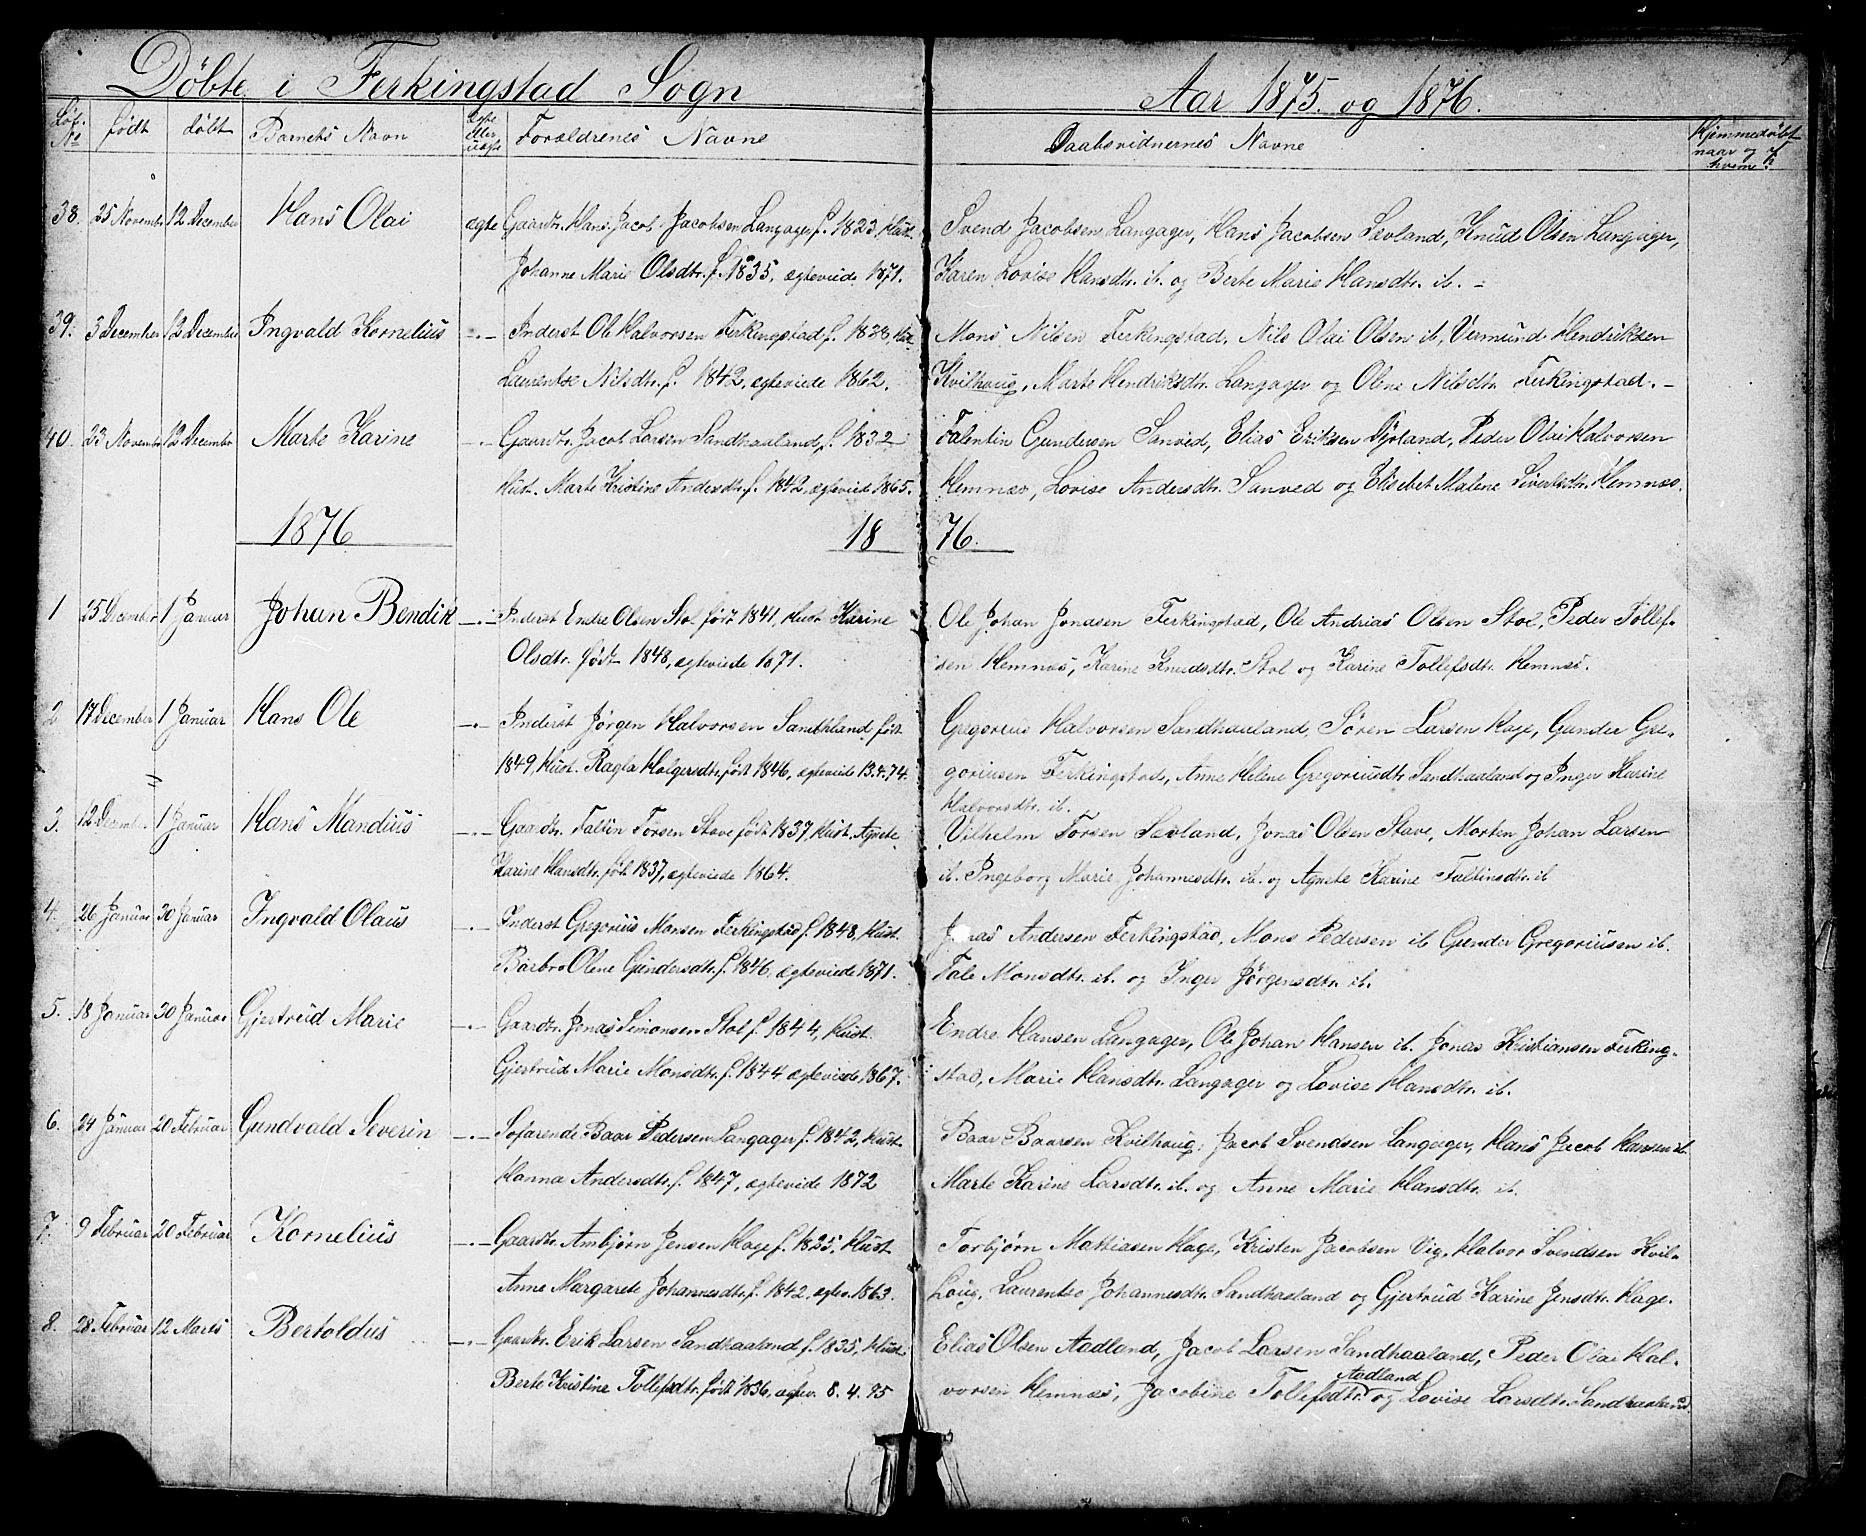 Döbte i Ferkingstad Sogn
Aar 1875 og 1876.
Löb. No födt döbt Barnets Navn Egte eller uægte Forældrenes Navne Daabsvidnernes Navne Hjemmedöbt naar og af hvem?
38. 25 November 12 December Hans Olai ægte Gaardbr. Hans Jacob Jacobsen Langager f. 1823, Hust. Svend Jacobsen Langager, Hans Jacobsen Sævland, Knud Olsen Langager,
Johanne Marie Olsdtr. f. 1835, egteviede 1871. Karen Lovise Hansdtr. ib. og Berte Marie Hansdtr. ib. -
39. 3 December 12 December Ingvald Kornelius -"- Inderst Ole Halvorsen Ferkingstad f. 1838, Hus. Mons Nilsen Ferkingstad, Nils Olai Olsen ib, Vermund Hendriksen
Laurentse Nilsdtr. f. 1842, egteviede 1862. Kvilhaug, Marte Hendriksdtr. Langager og Olene Nilsdtr. Ferkingstad. -
40. 23 November 12 December Marte Karine -"- Gaardbr. Jacob Larsen Sandhaaland f. 1832 Falentin Gundersen Sanved, Elias Eriksen Dyrland, Peder Olai Halvorsen
Hust. Marte Kristine Andersdtr. f. 1842, egteviede 1865. Hemnæs, Lovise Andersdtr. Sanved og Elisebet Malene Sivertsdtr. Hemnæs.
1876 1876.
1 25 December 1 Januar Johan Bendik -"- Inderst Endre Olsen Stol född 1841, Hust. Karine Ole Johan Jonasen Ferkingstad, Ole Andrias Olsen Stol, Peder Tollef-
Olsdtr. född 1848, egteviede 1871. sen Hemnæs, Karine Knudsdtr. Stol og Karine Tollefsdtr. Hemnæs.
2 17 December 1 Januar Hans Ole -"- Inderst Jörgen Halvorsen Sandhland, födt Gregorius Halvorsen Sandhaaland, Sören Larsen Hage, Gunder Gre-
1849, Hust. Ragla Holgersdtr. födt 1846, egteviede 13.4.74. goriusen Ferkingstad, Anne Helene Gregoriusdtr. Sandhaaland og Inger Karine
Halvorsdtr. ib.
3. 12 December 1 Januar Hans Mandius -"- Gaardbr. Faltin Torsen Stave födt 1837, Hust. Agnete Vilhelm Torsen Sævland, Jonas Olsen Stave, Morten Johan Larsen
Karine Hansdtr. föd 1837, egteviede 1864. ib. Ingeborg Marie Johannesdtr. ib. og Agnete Karine Faltinsdtr. ib
4. 26 Januar 30 Januar Ingvald Olaus -"- Inderst Gregorius Monsen Ferkingstad f. 1848, Hust. Jonas Andersen Ferkingstad, Mons Pedersen ib Gunder Gregoriusen ib.
Barbro Olene Gundersdtr. f. 1846, egteviede 1871. Tale Monsdtr. ib. og Inger Jörgensdtr. ib.
5. 18 Januar 30 Januar Gjertrud Marie -"- Gaardbr. Jonas Simonsen Stol f. 1844, Hust. Endre Hansen Langager, Ole Johan Hansen ib. Jonas Kristiansen Ferking-
Gjertrud Marie Monsdtr. f. 1844 egteviede 1867. stad, Marie Hansdtr. Langager og Lovise Hansdtr. ib.
6. 24 Januar 20 Februar Gundvald Severin -"- Sofarende Baar Pedersen Langager f. 1842, Hust. Baar Baarsen Kvilhaug, Jacob Svendsen Langager, Hans Jacob Hansen ib.
Hanna Andersdtr. f. 1847, egteviede 1872 Marte Karine Larsdtr. ib. og Anne Marie Hansdtr. ib.
7. 9 Februar 20 Februar Kornelius -"- Gaardbr. Ambjörn Jensen Hage f. 1825, Hust Torbjörn Mattiasen Hage, Kristen Jacobsen Vig, Halvor Svendsen Kvil-
Anne Margarete Johannesdtr. f. 1842, egtev. 1863. houg, Laurentse Johannesdtr. Sandhaaland og Gjertrud Karine Jensdtr. Hage.
8. 28 Februar 12 Marts Bertoldus -"- Gaardbr. Erik Larsen Sandhaaland f. 1835, Hust. Elias Olsen Aadland, Jacob Larsen Sandhaaland, Peder Olai Hal-
Berte Kristine Tollefsdtr. födt 1836, egtev. 8.4.95 vorsen Hemnæs, Jacobine Tollefsdtr. Aadland og Lovise Larsdtr. Sandhaaland